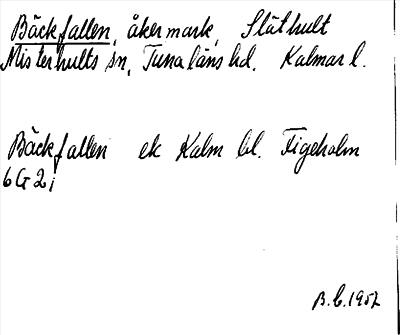 Bäckfallen, åkermark, Släthult
Misterhults sn, Tunaläns hd. Kalmar l.
Bäckfallen ek Kalm bl. Figeholm
6G2j
B.C.1957